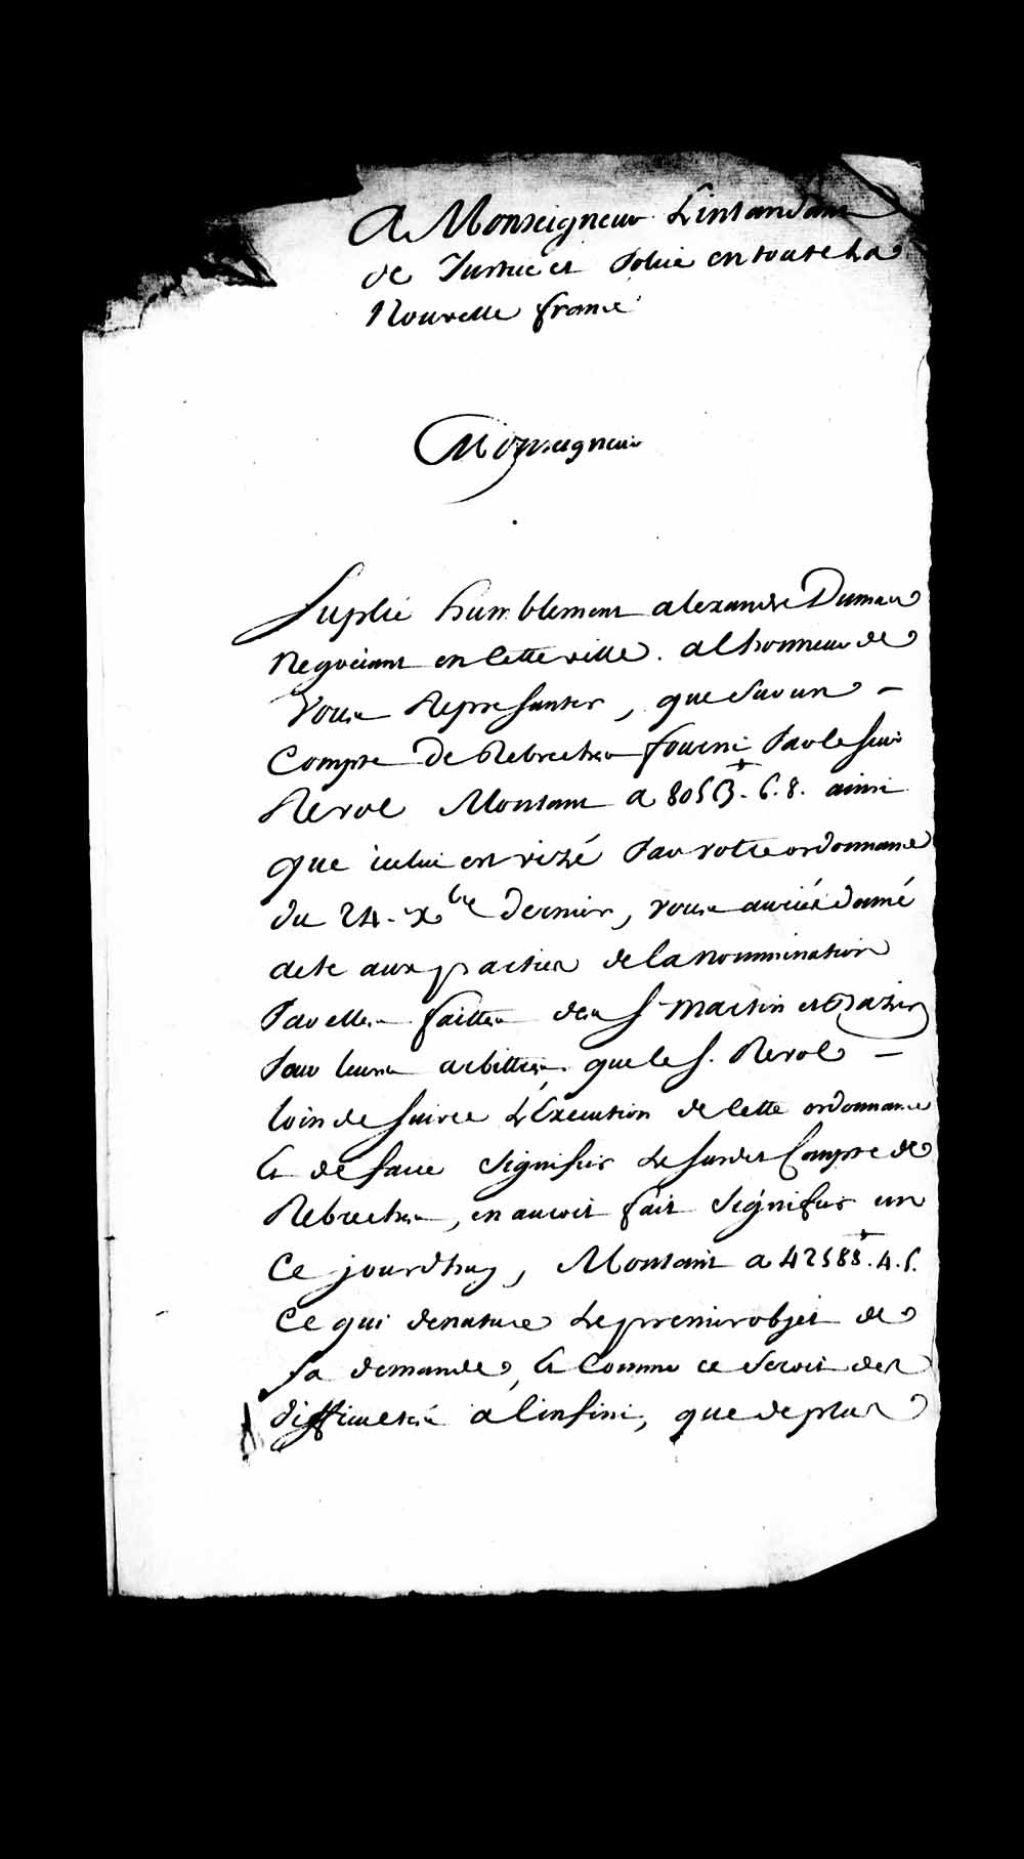 A Monseigneur Lintandant
de Justice et Police en toute La
Nouvelle france
Monseigneur
Suplie humblement alexandre Dumas
Negociant en cette ville. a lhonneur de
Vous Represanter, que sur un –
Compte De Rebrecher fourni Par le sieur
Revol Montant a 6.8. ainsi
que icelui est vizé Par votre ordonnance
du 24. xbre dernier, vous auriés donné
acte aux parties de la nommination
Par elles faittes des Srs Martin et
Pour leurs arbittres. que le S. Revol –
loin de suivre L'Execution de cette ordonnance
Et de faire signifier Le susdit Compte de
Rebrecher, en auroit fait signifier un
Ce jourdhuy, Montant a
Ce qui denature Le premier objet de
sa demande, Et Comme ce seroit des
difficultés a linfini, que de plus